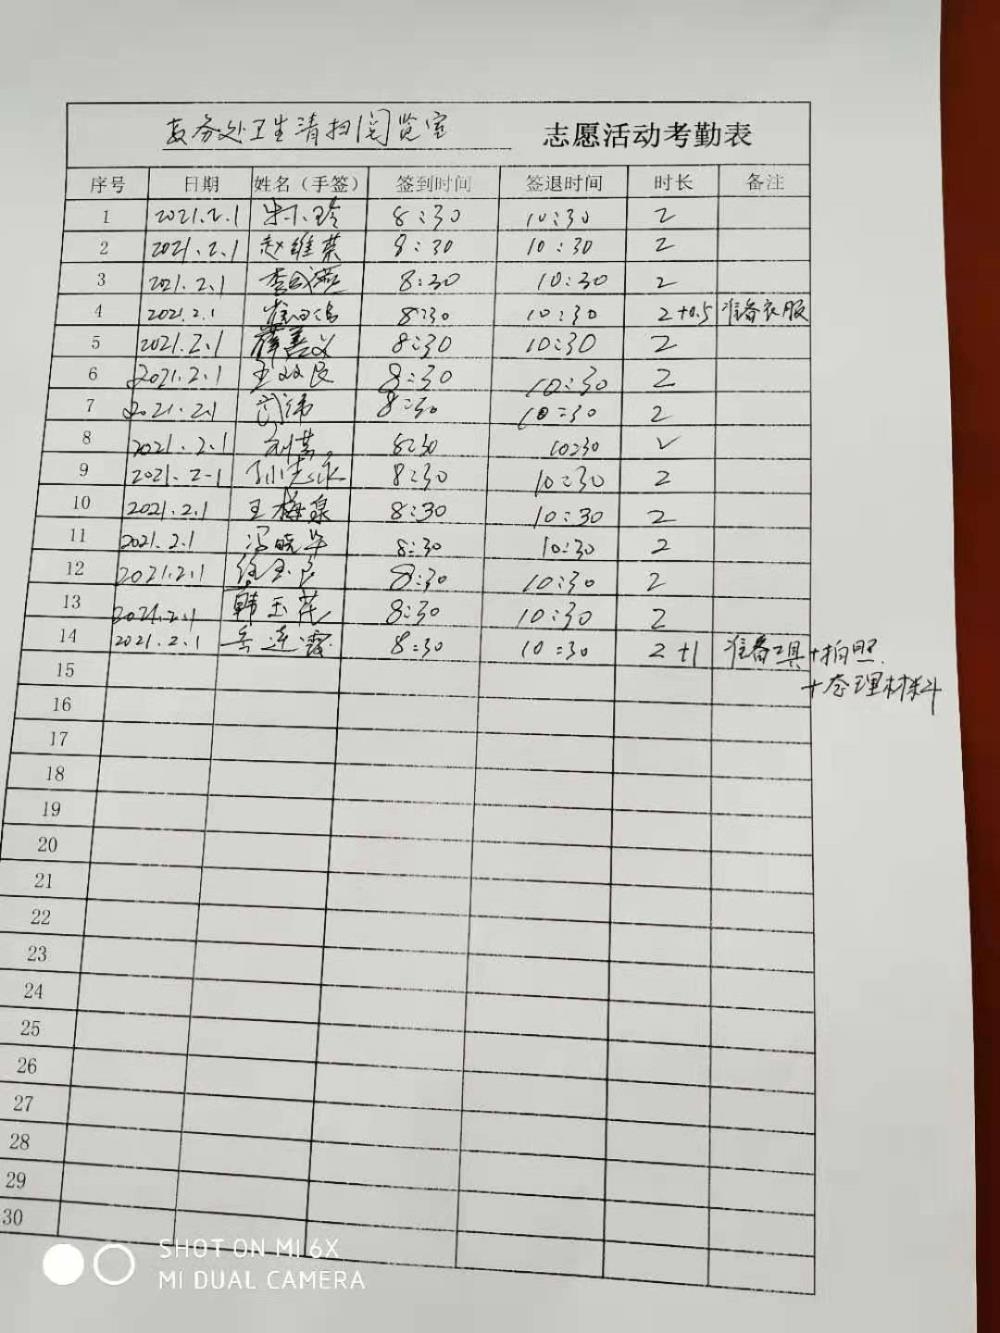 务处卫生清扫阅览室 志愿活动考勤表
序号 日期 姓名（手签） 签到时间 签退时间 时长 备注
1 2021.2.1 8:30 10:30 2
2 2021.2.1 赵维荣 8:30 10:30 2
3 2021.2.1 8:30 10:30 2
4 2021.2.1 8:30 10:30 2+0.5 准备衣服
5 2021.2.1 薛善义 8:30 10:30 2
6 2021.2.1 王双良 8:30 10:30 2
7 2021.2.1 8:30 10:30 2
8 2021.2.1 8:30 10:30 2
9 2021.2.1 8:30 10:30 2
10 2021.2.1 王梅泉 8:30 10:30 2
11 2021.2.1 冯晓华 8:30 10:30 2
12 2021.2.1 8:30 10:30 2
13 2021.2.1 韩玉花 8:30 10:30 2
14 2021.2.1 岳连霞 8:30 10:30 2+1 准备工具+拍照
+整理材料
15
16
17
18
19
20
21
22
23
24
25
26
27
28
29
30
SHOT ON MI 6X
MI DUAL CAMERA